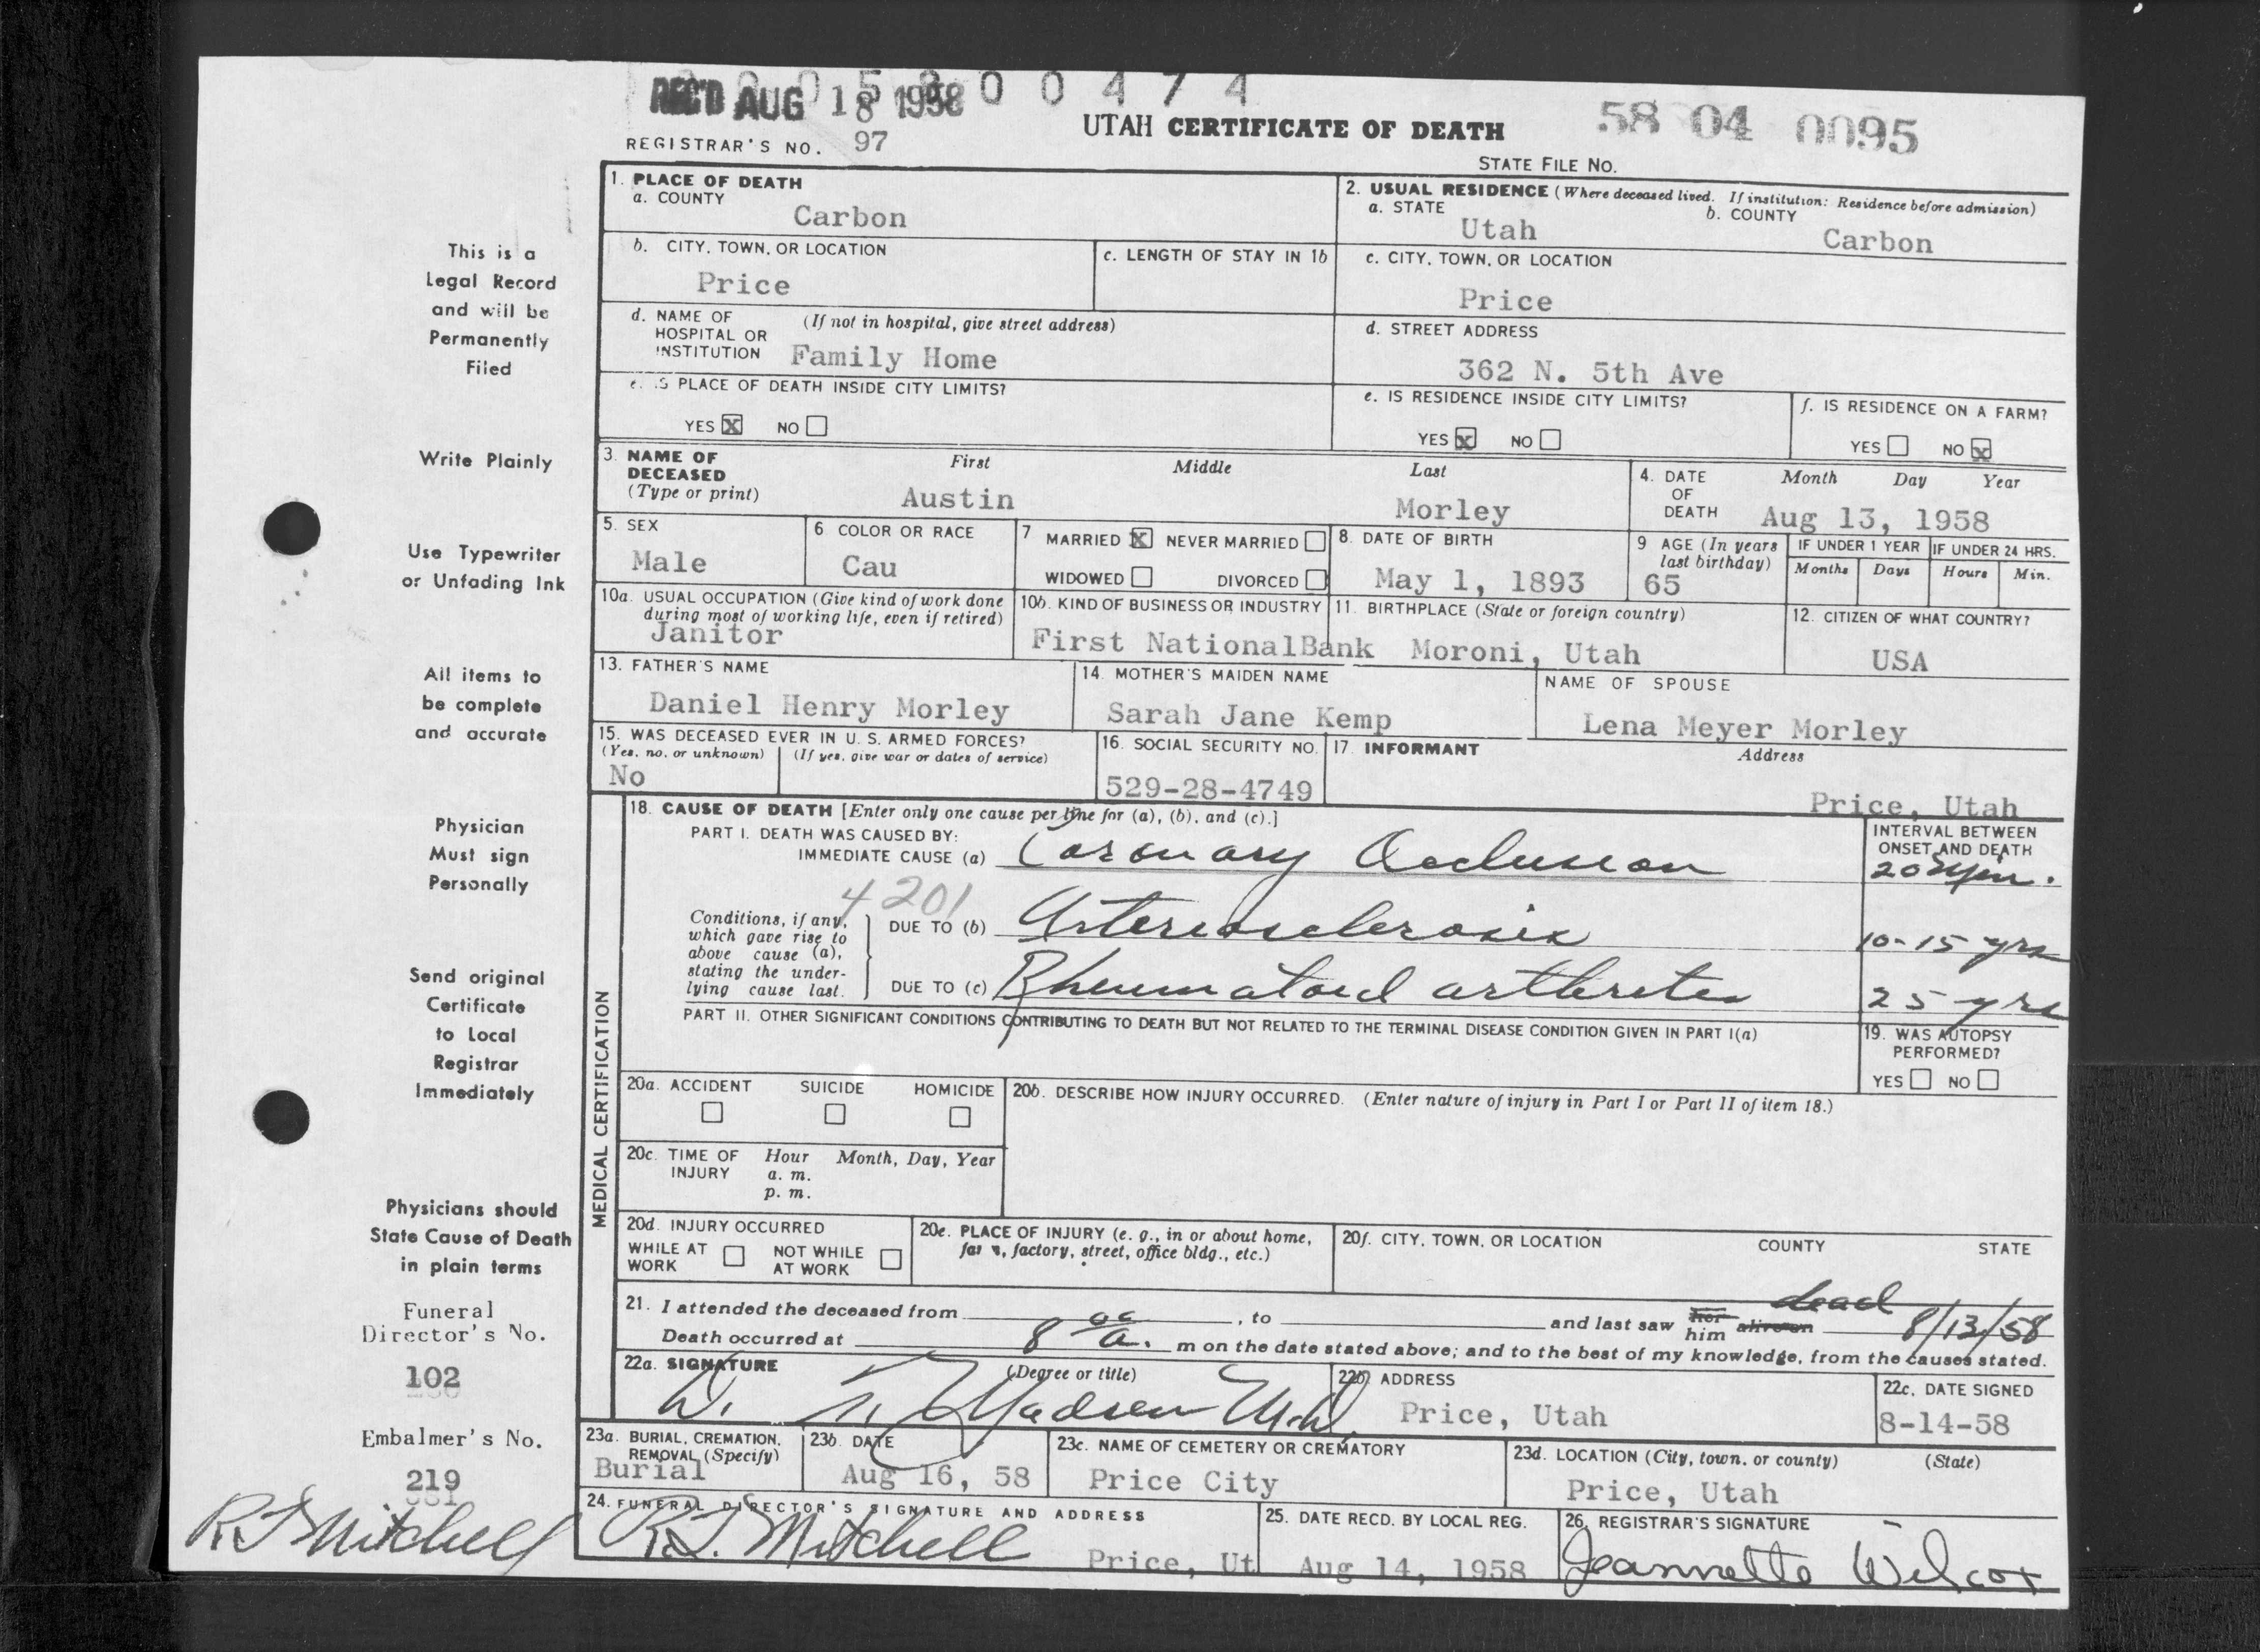 REC'D AUG 18 1958 0 0 4 7 4
UTAH CERTIFICATE OF DEATH
58 04 0095
REGISTRAR'S NO. 97
STATE FILE NO.
This is a
Legal Record
and will be
Permanently
Filed
Write Plainly
Use Typewriter
or Unfading Ink
All items to
be complete
and accurate
Physician
Must sign
Personally
Send original
Certificate
to Local
Registrar
Immediately
Physicians should
State Cause of Death
in plain terms
Funeral
Director's No.
102
Embalmer's No.
219
R J Mitchell
1. PLACE OF DEATH
a. COUNTY
Carbon
2. USUAL RESIDENCE (Where deceased lived. If institution: Residence before admission)
a. STATE
Utah
b. COUNTY
Carbon
b. CITY, TOWN, OR LOCATION
Price
c. LENGTH OF STAY IN 1b
c. CITY, TOWN, OR LOCATION
Price
d. NAME OF (If not in hospital, give street address)
HOSPITAL OR
INSTITUTION Family Home
d. STREET ADDRESS
362 N. 5th Ave
e. IS PLACE OF DEATH INSIDE CITY LIMITS?
YES X NO
e. IS RESIDENCE INSIDE CITY LIMITS?
YES X NO
f. IS RESIDENCE ON A FARM?
YES NO X
3. NAME OF First Middle Last
DECEASED
(Type or print) Austin Morley
4. DATE Month Day Year
OF
DEATH Aug 13, 1958
5. SEX
Male
6 COLOR OR RACE
Cau
7 MARRIED X NEVER MARRIED
WIDOWED DIVORCED
8. DATE OF BIRTH
May 1, 1893
9 AGE (In years
last birthday)
65
IF UNDER 1 YEAR
Months Days
IF UNDER 24 HRS.
Hours Min.
10a. USUAL OCCUPATION (Give kind of work done
during most of working life, even if retired)
Janitor
10b. KIND OF BUSINESS OR INDUSTRY
First NationalBank
11. BIRTHPLACE (State or foreign country)
Moroni, Utah
12. CITIZEN OF WHAT COUNTRY?
USA
13. FATHER'S NAME
Daniel Henry Morley
14. MOTHER'S MAIDEN NAME
Sarah Jane Kemp
NAME OF SPOUSE
Lena Meyer Morley
15. WAS DECEASED EVER IN U. S. ARMED FORCES?
(Yes, no, or unknown) (If yes, give war or dates of service)
No
16. SOCIAL SECURITY NO.
529-28-4749
17. INFORMANT Address
Price, Utah
MEDICAL CERTIFICATION
18. CAUSE OF DEATH [Enter only one cause per line for (a), (b), and (c).]
PART I. DEATH WAS CAUSED BY:
IMMEDIATE CAUSE (a) Coronary Occlusion
INTERVAL BETWEEN
ONSET AND DEATH
20 min.
4201
Conditions, if any,
which gave rise to
above cause (a),
stating the under-
lying cause last.
DUE TO (b) Arteriosclerosis 10-15 yrs
DUE TO (c) Rheumatoid arthritis 25 yrs
PART II. OTHER SIGNIFICANT CONDITIONS CONTRIBUTING TO DEATH BUT NOT RELATED TO THE TERMINAL DISEASE CONDITION GIVEN IN PART I(a)
19. WAS AUTOPSY
PERFORMED?
YES NO
20a. ACCIDENT SUICIDE HOMICIDE
20b. DESCRIBE HOW INJURY OCCURRED. (Enter nature of injury in Part I or Part II of item 18.)
20c. TIME OF Hour Month, Day, Year
INJURY a. m.
p. m.
20d. INJURY OCCURRED
WHILE AT WORK NOT WHILE AT WORK
20e. PLACE OF INJURY (e. g., in or about home,
farm, factory, street, office bldg., etc.)
20f. CITY, TOWN, OR LOCATION COUNTY STATE
21. I attended the deceased from , to and last saw her him alive on dead 8/13/58
Death occurred at 8 00 a. m on the date stated above; and to the best of my knowledge, from the causes stated.
22a. SIGNATURE (Degree or title)
Madsen
22b. ADDRESS
Price, Utah
22c. DATE SIGNED
8-14-58
23a. BURIAL, CREMATION,
REMOVAL (Specify)
Burial
23b. DATE
Aug 16, 58
23c. NAME OF CEMETERY OR CREMATORY
Price City
23d. LOCATION (City, town, or county) (State)
Price, Utah
24. FUNERAL DIRECTOR'S SIGNATURE AND ADDRESS
R.J. Mitchell Price, Ut
25. DATE RECD. BY LOCAL REG.
Aug 14, 1958
26. REGISTRAR'S SIGNATURE
Jeannette Wilcox